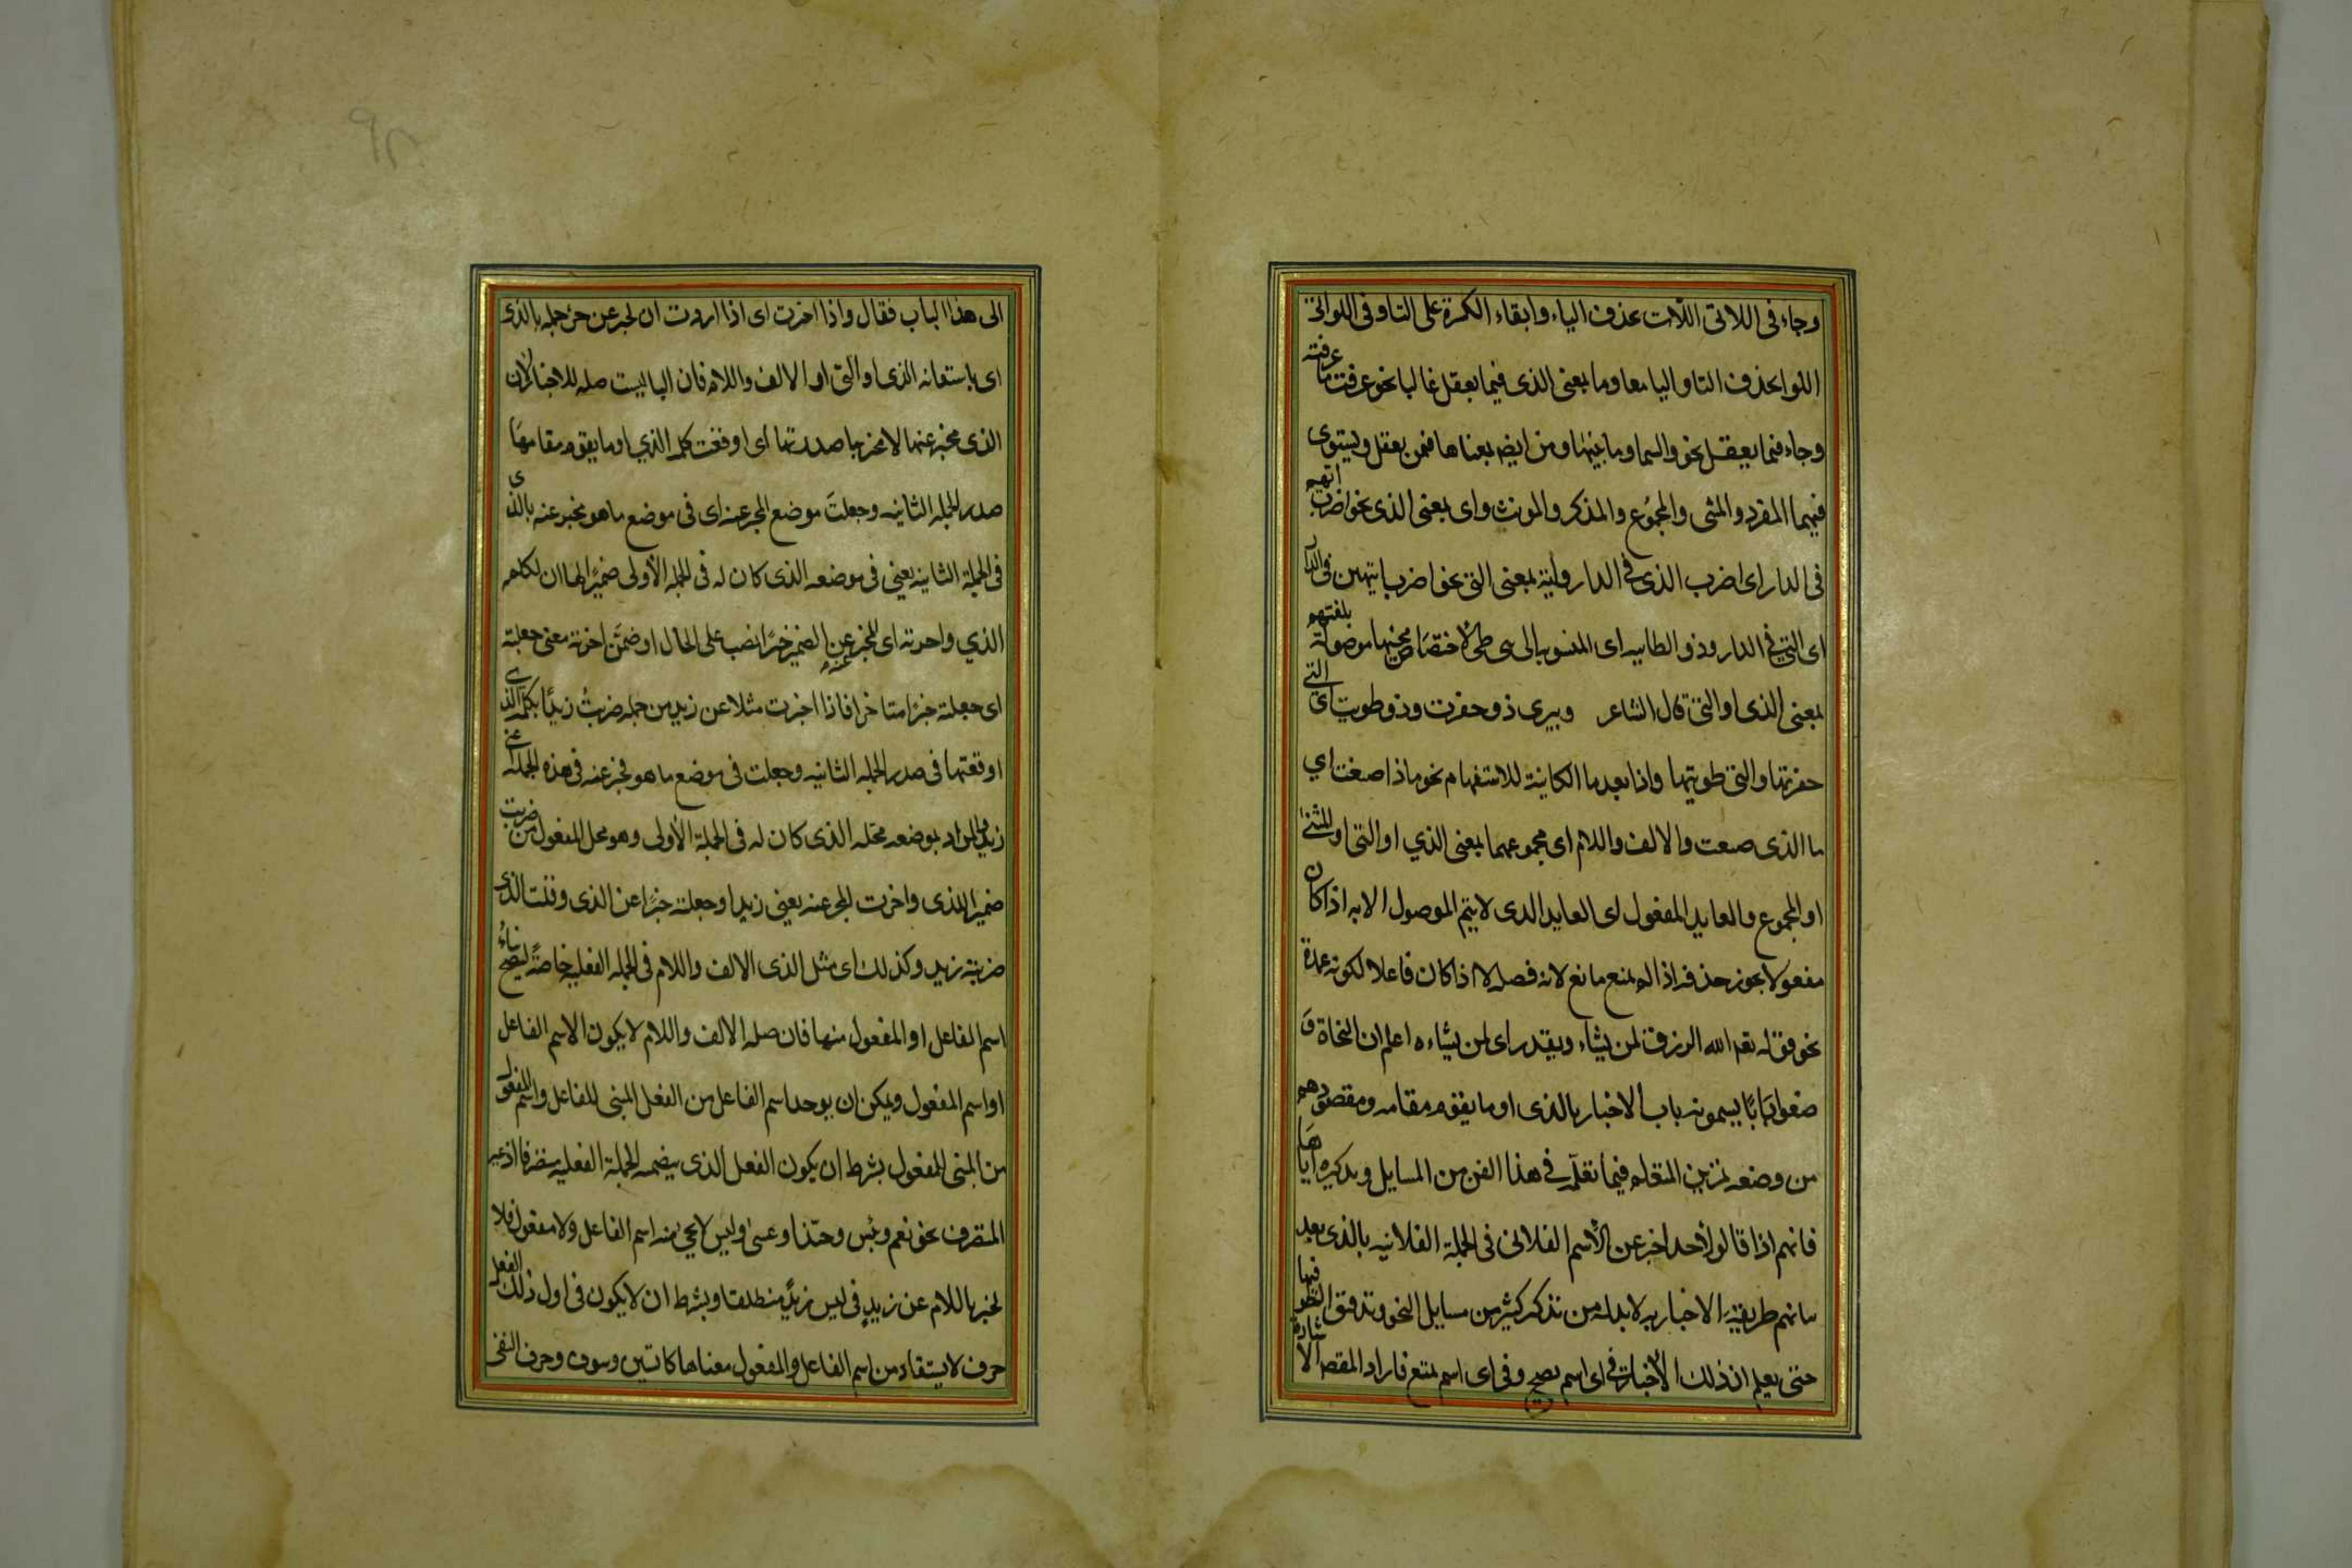 وجاء فى اللاتى اللات بحذف الياء وابقاء الكسرة على التاء وفى اللواتى
اللوا بحذف التا واليا معا وما بمعنى الذى فيما يعقل غالبا نحو عرفت ما عرفته
وجاء فيما يعقل نحو والسما وما بنيها ومن ايضا بمعناها فيمن يعقل ويستوى
فيهما المفرد والمثى والمجموع والمذكر والمونث واى بمعنى الذى نحو اضرب ايهم
فى الدار اى اضرب الذى فى الدار واية بمعنى التى نحو اضرب ايتهن فى الدار
اى التى فى الدار وذو الطاييه اى المنسوبة الى بنى طى لاختصاص مجيئها موصولة بلغتهم
بمعنى الذى او التى قال الشاعر وبيرى ذو حفرت وذو طويت اى التى
حفرتها والتى طويتها واذا بعد ما الكاينة للاستفهام نحو ماذا صنعت اي
ما الذى صنعت والالف واللام اى مجموعهما بمعنى الذي او التى او المثنى
او المجموع والعايد المفعول اى العايد الذى لا يتم الموصول الا به اذا كان
مفعولا يجوز حذفه اذا لم يمنع مانع لانه فضله لا اذا كان فاعلا لكونه عمدة
نحو قوله تعه الله الرزق لمن يشاء ويقدر اى لمن يشاءه اعلم ان النحاة و
ضعوا بابا يسمونه باب الاخبار بالذى او ما يقوم مقامه ومقصودهم
من وضعه تمرين المتعلم فيما تعلم فى هذا الفن من المسايل وتذكيره اياها
فانهم اذا قالوا لاحد اخبر عن الاسم الفلانى فى الجملة الفلانيه بالذى بعد
بيانهم طريقة الاخبار به لابد له من تذكر كثير من مسايل النحو وتدقيق النظر فيها
حتى يعلم ان ذلك الاخبار فى اى اسم يصح وفى اى اسم يمتنع فاراد المصه الاشارة
الى هذا الباب فقال واذا اخبرت اى اذا اردت ان تخبر عن جزء جمله بالذى
اى باستعانه الذى او التى او الالف واللام فان البا ليست صله للاخبار لان
الذى مخبر عنها لا مخبر بها صدرتها اى اوقعت كلمه الذي او ما يقوم مقامها
صدر الجمله الثانيه وجعلت موضع المخبر عنه اى فى موضع ما هو مخبر عنه بالذى
فى الجملة الثانيه يعنى فى موضعه الذى كان له فى الجمله الأولى ضميرا لها اى لكلمه
الذي واخرته اى المخبر عنه عن الضمير خبرا نصب على الحال او ضمن اخرته معنى جعلته
اى جعلته خبرا متاخرا فاذا اخبرت مثلا عن زيد من جمله ضربت زيدا بكلمه الذى
اوقعتها فى صدر الجمله الثانيه وجعلت فى موضع ما هو مخبر عنه فى هذه الجمله اعنى
زيد والمراد بموضعه محله الذى كان له فى الجملة الأولى وهو محل المفعول من ضربت
ضميرا للذى واخرت المخبر عنه يعنى زيدا وجعلته خبرا عن الذى وقلت الذى
ضربته زيد وكذلك اى مثل الذى الالف واللام فى الجمله الفعليه خاصة ليصح بناء
اسم الفاعل او المفعول منها فان صله الالف واللام لا يكون الا اسم الفاعل
او اسم المفعول ويمكن ان يوخد اسم الفاعل من الفعل المبنى للفاعل واسم المفعول
من المبنى للمفعول بشرط ان يكون الفعل الذى يتضمنه الجملة الفعليه متصرفا اذ غير
المتصرف نحو نعم وبئس وحبذا وعسى وليس لا يجئ منه اسم الفاعل ولا مفعول فلا
يخبر باللام عن زيد فى ليس زيد منطلقا وبشرط ان لا يكون فى اول ذلك الفعل
حرف لا يستفاد من اسم الفاعل والمفعول معناها كالسين وسوف وحرف النفى